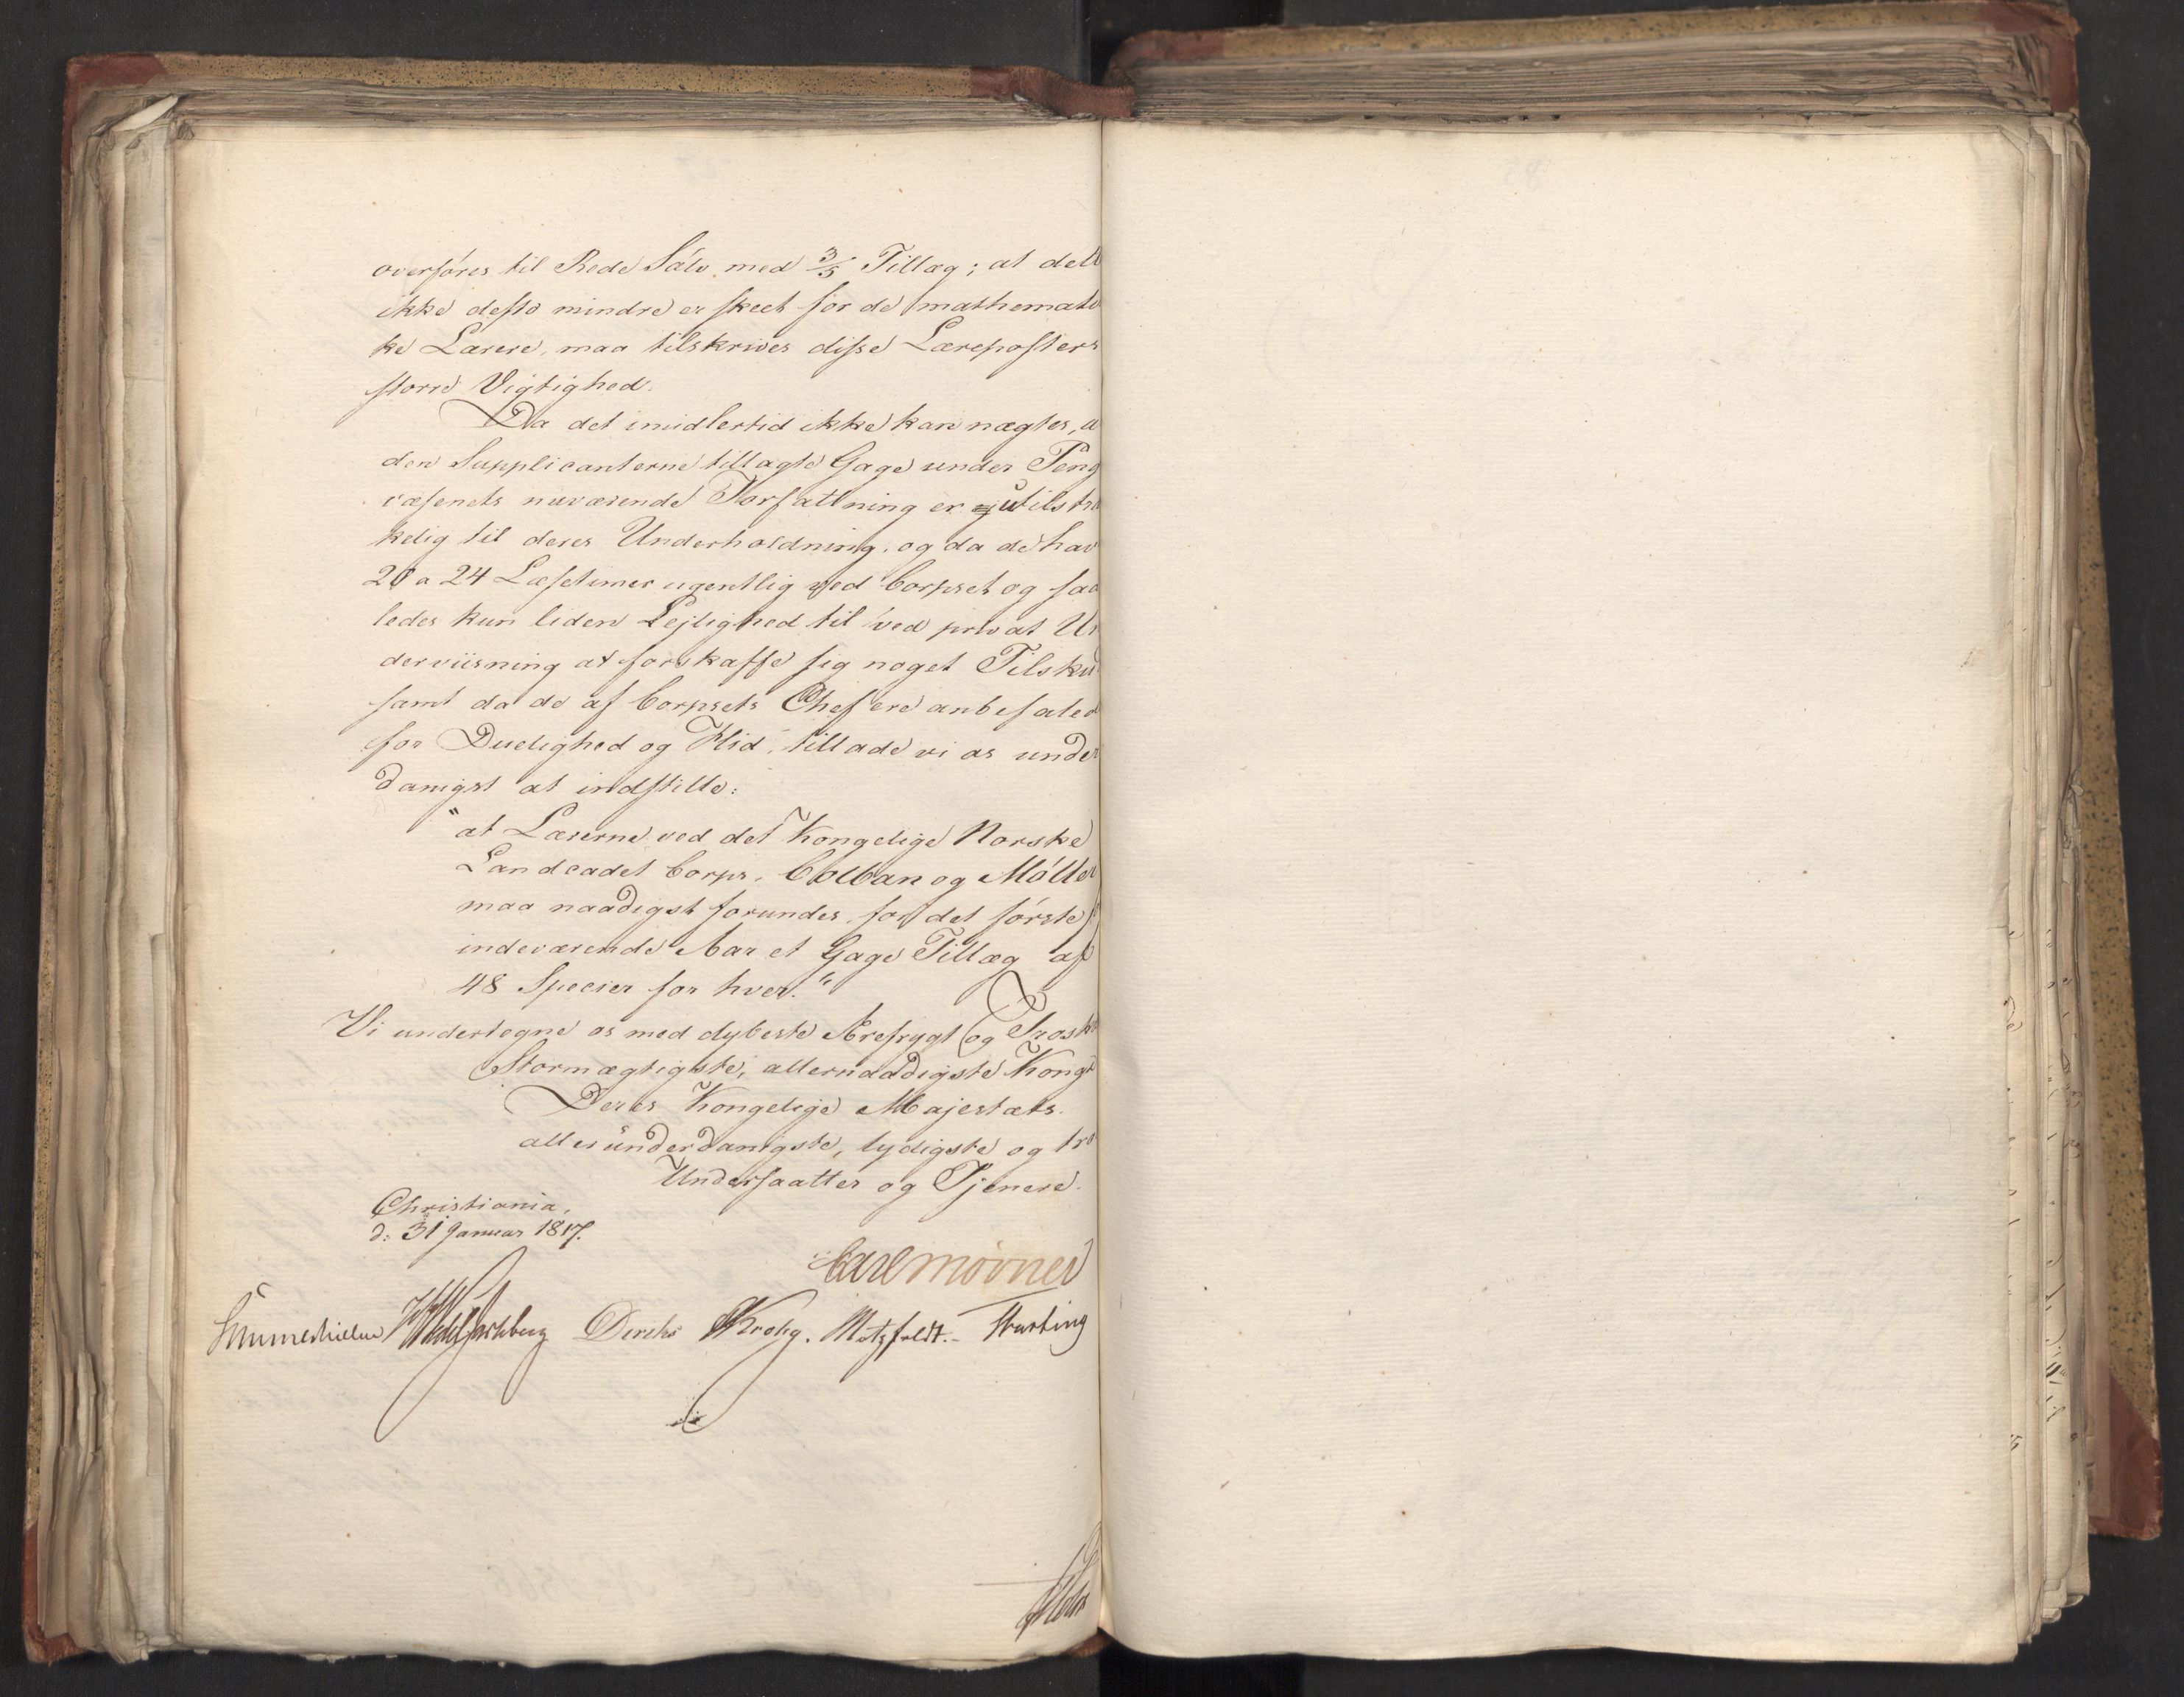 overføres til Rede Sølv med 3/5 Tillæg; at dett
ikke desto mindre er skeet for de mathemati
ke Lærere, maa tilskrives disse Læreposters
større Vigtighed.
Da det imidlertid ikke kan nægtes, a
den Supplicanterne tillagte Gage under Peng
væsenets nuværende Forfattning er utilstræ
kelig til deres Underholdning, og da de hav
20 a 24 Læsetimer ugentlig ved Corpset og saa
ledes kun liden Lejlighed til ved privat Un
derviisning at forskaffe sig noget Tilsku
samt da de af Corpsets Chef ere anbefaled
for Duelighed og Flid, tillade vi os under
danigst at indstille:
"at Lærerne ved det Kongelige Norske
Landcadet Corps, Colban og Møller
maa naadigst forundes, for det første
indeværende Aar et Gage Tillæg af
48 Species for hver."
Vi undertegne os med dybeste Ærefrygt og Trosk
Stormægtigste, allernaadigste Konge
Deres Kongelige Majestæts
allerunderdanigste, lydigste og tro
Undersaatter og Tjenere.
Christiania,
d: 31 Januar 1817.
Carl Mörner
Sommerhielm HWedelJarlsberg Diriks Krohg. Motzfeldt. Hvas